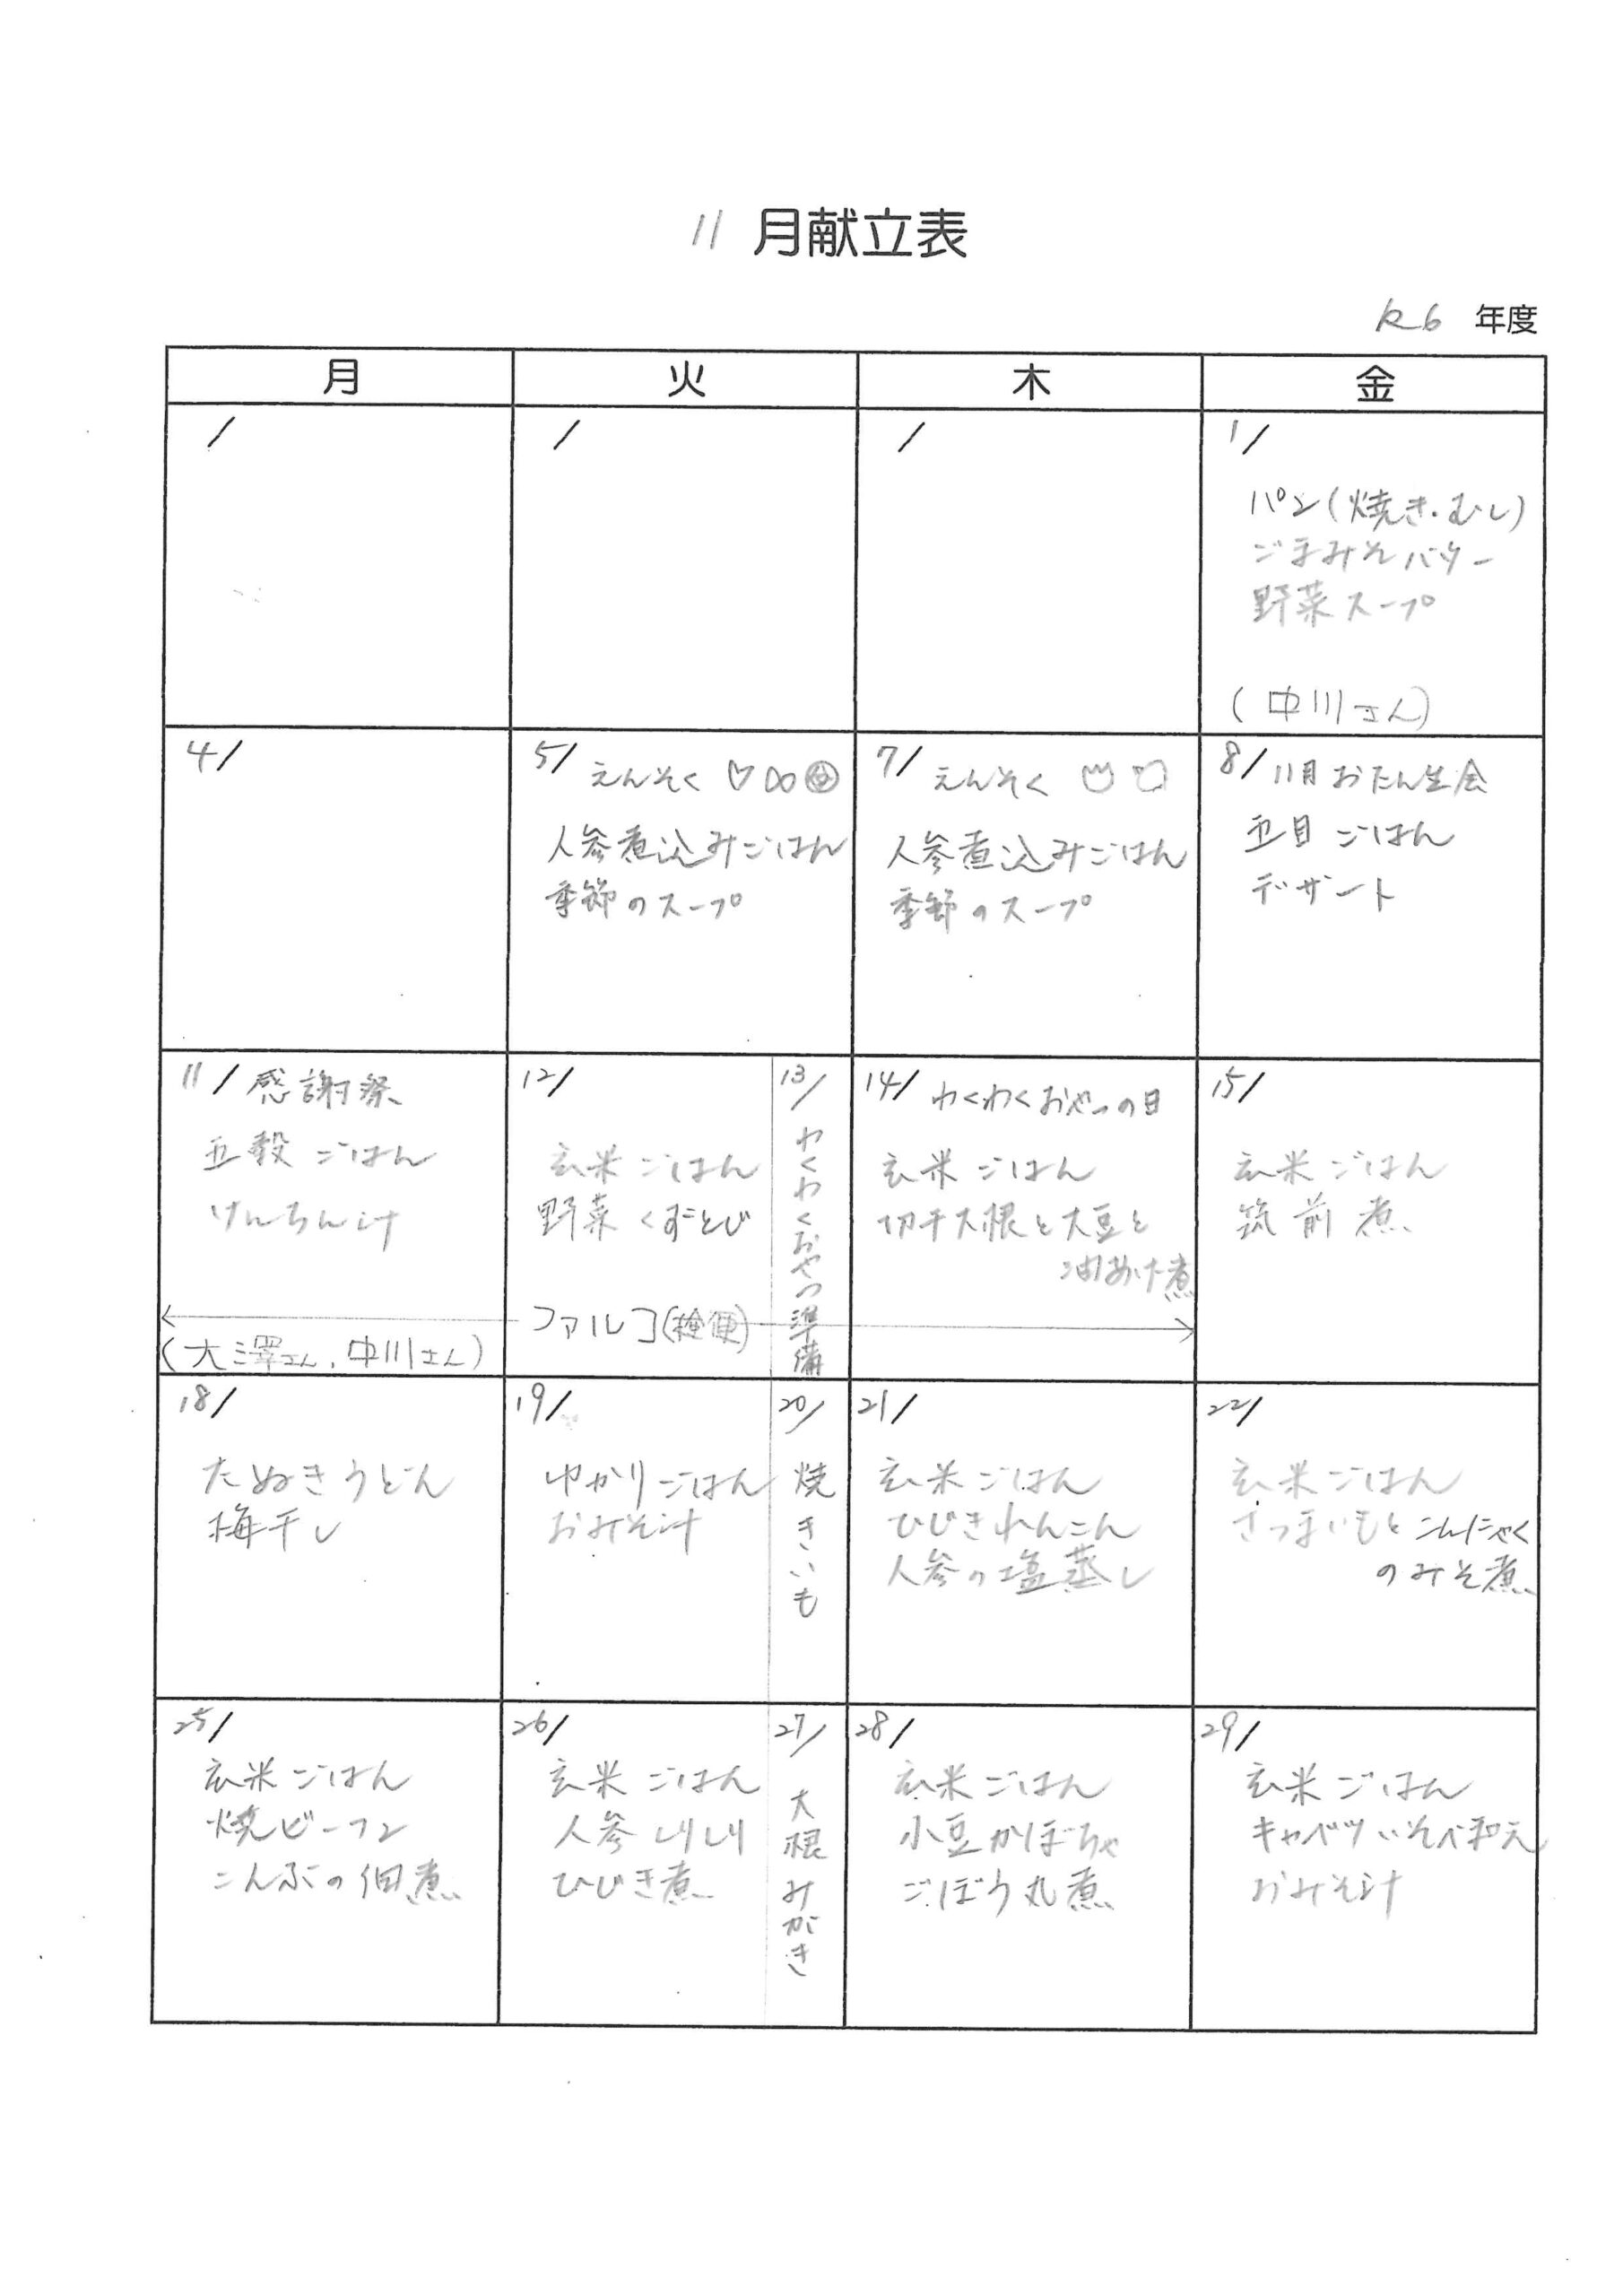 11 月献立表
R6 年度
月 火 木 金
/ / / 1/
パン(焼き・むし)
ごまみそバター
野菜スープ
(中川さん)
4/
5/ えんそく
人参煮込みごはん
季節のスープ
7/ えんそく
人参煮込みごはん
季節のスープ
8/ 11月おたん生会
五目ごはん
デザート
11/ 感謝祭
五穀ごはん
けんちん汁
(大澤さん、中川さん)
12/
玄米ごはん
野菜くずとじ
ファルコ(検便)
13/
わくわくおやつ準備
14/ わくわくおやつの日
玄米ごはん
切干大根と大豆と
油あげ煮
15/
玄米ごはん
筑前煮
18/
たぬきうどん
梅干し
19/
ゆかりごはん
おみそ汁
20/
焼きいも
21/
玄米ごはん
ひじきれんこん
人参の塩蒸し
22/
玄米ごはん
さつまいもとこんにゃく
のみそ煮
25/
玄米ごはん
焼ビーフン
こんぶの佃煮
26/
玄米ごはん
人参しりしり
ひじき煮
27/
大根みがき
28/
玄米ごはん
小豆かぼちゃ
ごぼう丸煮
29/
玄米ごはん
キャベツいそべ和え
おみそ汁